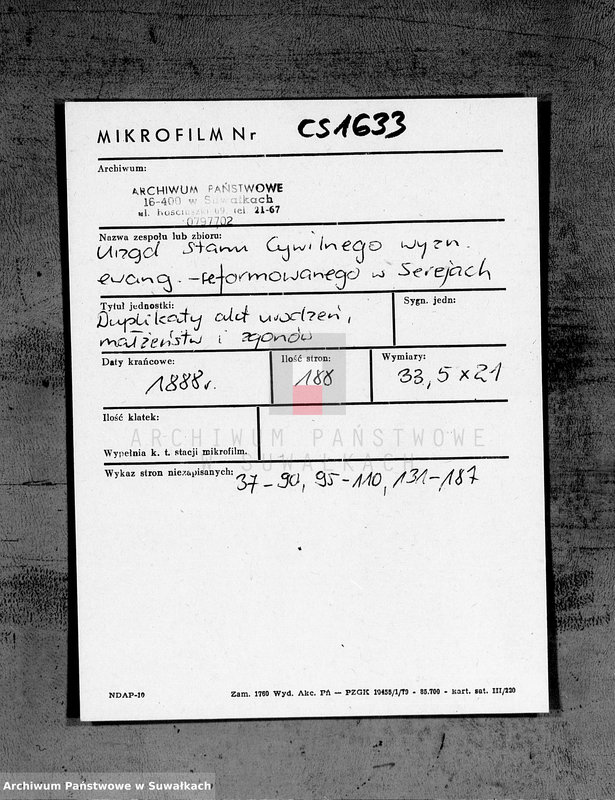 MIKROFILM Nr CS1633
Archiwum:
ARCHIWUM PAŃSTWOWE
16-400 w Suwałkach
ul. Kościuszki 69, tel 21-67
0797702
Nazwa zespołu lub zbioru:
Urząd Stanu Cywilnego wyzn.
ewang.-reformowanego w Serejach
Tytuł jednostki:
Sygn. jedn:
Duplikaty akt urodzeń,
małżeństw i zgonów
Daty krańcowe:
1888r.
Ilość stron:
188
Wymiary:
33,5 x 21
Ilość klatek:
Wypełnia k. t. stacji mikrofilm.
ARCHIWUM PAŃSTWOWE
W SUWAŁKACH
Wykaz stron niezapisanych:
37-90, 95-110, 131-187
NDAP-10
Zam. 1760 Wyd. Akc. Pń — PZGK 10455/1/79 - 85.700 - kart. sat. III/220
Archiwum Państwowe w Suwałkach